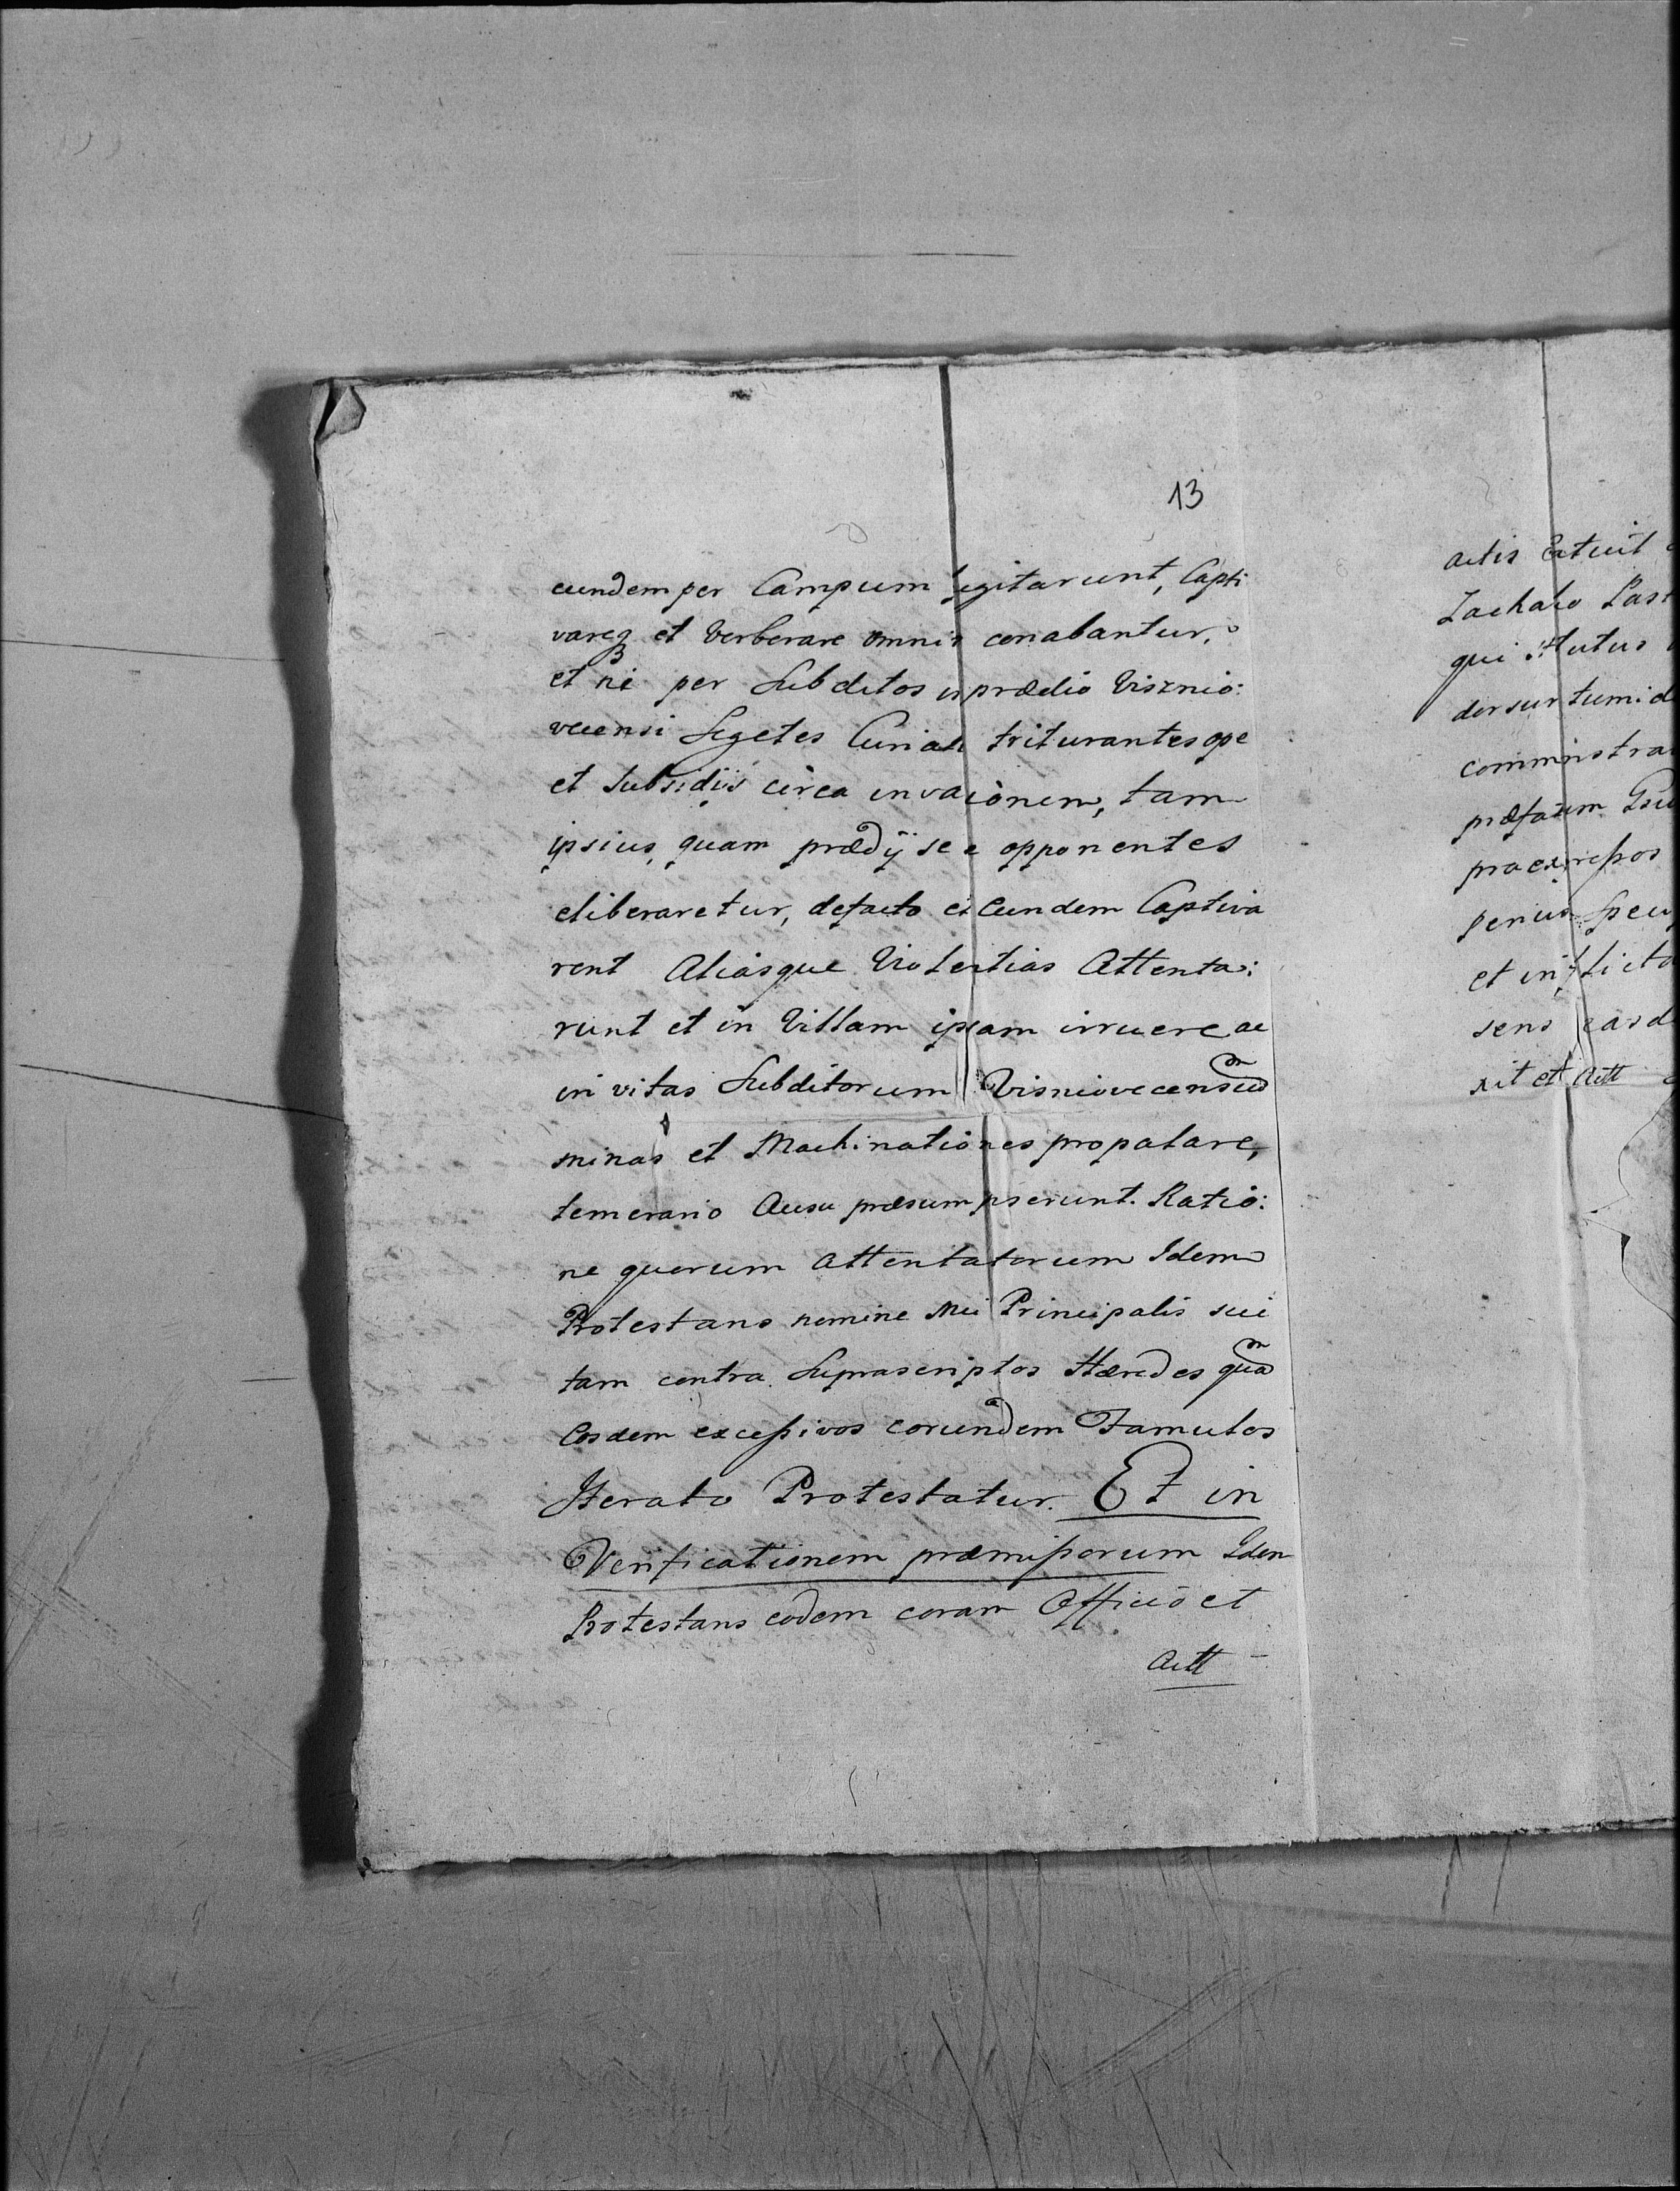 13
eundem per Campum agitarunt, Capti
vareq et Verberare omnis conabantur,
et ni per Subditos in prædio Visznio:
vecensi Segetes Curiales triturantes ope
et Subsidijs circa invaionem, tam
ipsius, quam prædij se e opponentes
eliberaretur, defacto et Eundem Captiva
rent Aliasque Violentias Attenta:
runt et in Villam ipsam irruere ac
in vitas Subditorum Visniovecensiu͠m
minas et Machinationes propalare,
temerario Ausu præsumpserunt. Ratio:
ne quorum Attentatorum Idem
Protestans nomine Mci Principalis sui
tam contra Suprascriptos Hæredes qua͠m
Eosdem excessivos eorundem Famulos
Iterato Protestatur. Et in
Verificationem præmissorum Idem
Protestans eodem coram Officio et
Actt
actis
qui
præfatum
et
xit et Actt